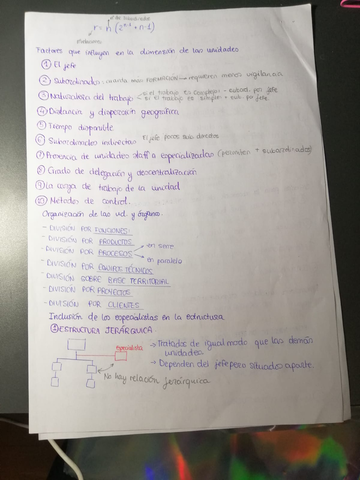 nº de subordinados
r = n (2ⁿ⁻¹ + n - 1)
relaciones
Factores que influyen en la dimensión de las unidades
① El jefe
② Subordinados: cuanta más formación → requieren menos vigilancia
③ Naturaleza del trabajo → si el trabajo es complejo - subord. por jefe
→ si el trabajo es simple + sub por jefe
④ Distancia y dispersión geográfica
⑤ Tiempo disponible
⑥ Subordinados indirectos
⑦ Presencia de unidades staff o especializadas (permiten + subordinados)
⑧ Grado de delegación y descentralización
⑨ La carga de trabajo de la unidad
⑩ Métodos de control.
Organización de las ud. y órganos.
- DIVISIÓN POR FUNCIONES
- DIVISIÓN POR PRODUCTOS
- DIVISIÓN POR PROCESOS → en serie
→ en paralelo
- DIVISIÓN POR EQUIPOS TÉCNICOS
- DIVISIÓN SOBRE BASE TERRITORIAL
- DIVISIÓN POR PROYECTOS
- DIVISIÓN POR CLIENTES
Inclusión de los especialistas en la estructura
① ESTRUCTURA JERÁRQUICA
especialista
→ Tratados de igual modo que las demás
unidades.
→ Dependen del jefe pero situados aparte.
No hay relación jerárquica